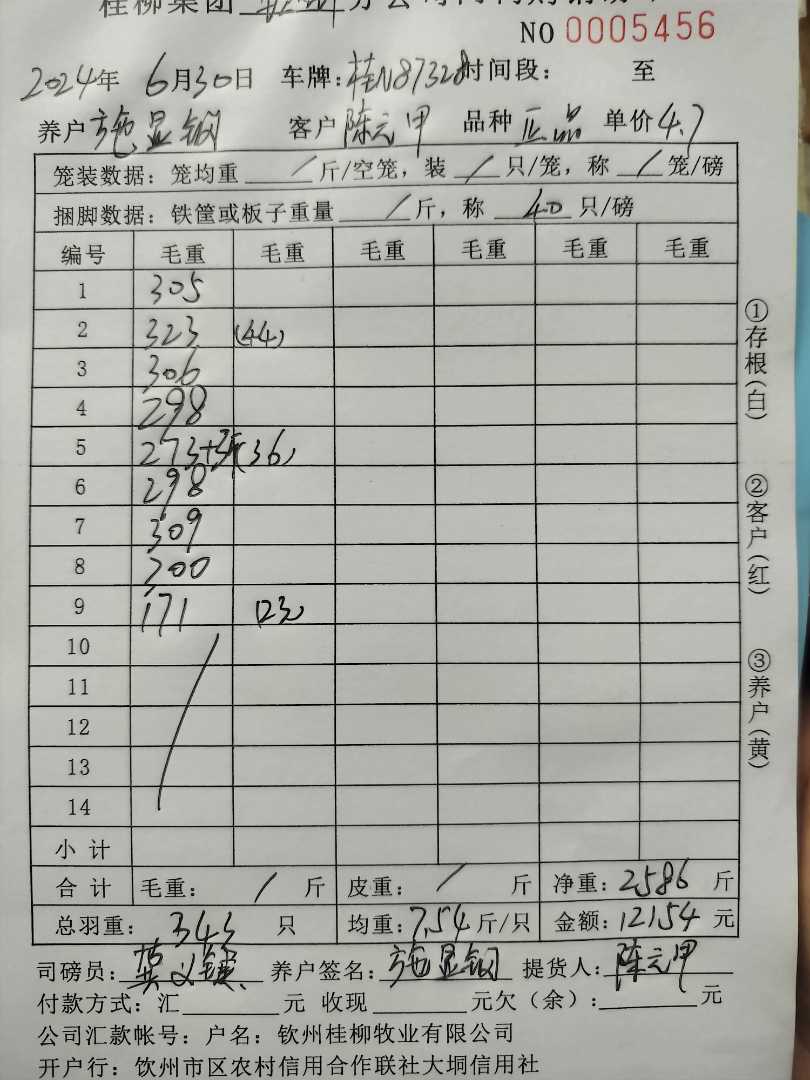 桂柳集团
NO 0005456
2024年 6月30日 车牌:桂N87328时间段: 至
养户 施显钢 客户 陈元甲 品种 正品 单价4.7
笼装数据:笼均重 / 斤/空笼,装 / 只/笼,称 / 笼/磅
捆脚数据:铁筐或板子重量 / 斤,称 40 只/磅
编号 毛重 毛重 毛重 毛重 毛重 毛重
1 305
2 323 (44)
3 306
4 298
5 273+3 (36)
6 298
7 309
8 300
9 171 (23)
10
11
12
13
14
小计
合计 毛重: / 斤 皮重: / 斤 净重:2586 斤
总羽重: 343 只 均重:7.54斤/只 金额:12154 元
司磅员: 养户签名:施显钢 提货人:陈元甲
付款方式:汇 元 收现 元欠(余): 元
公司汇款帐号:户名:钦州桂柳牧业有限公司
开户行:钦州市区农村信用合作联社大垌信用社
①存根(白)
②客户(红)
③养户(黄)